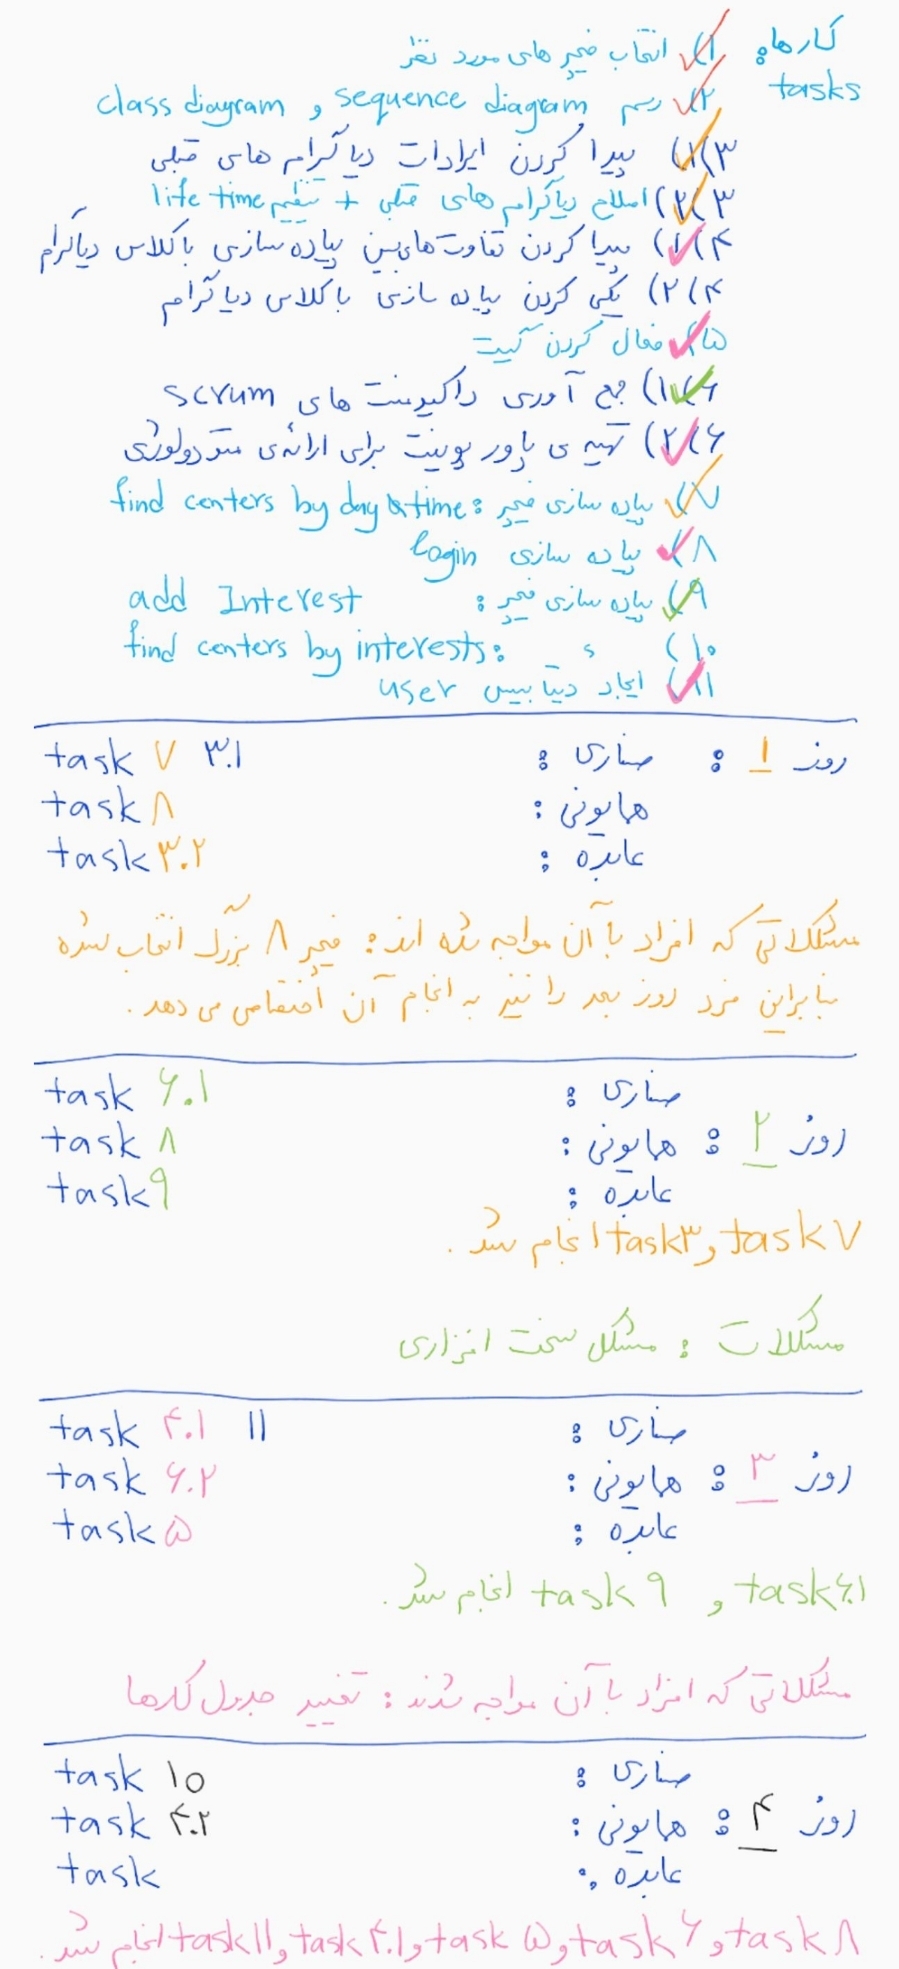 کارها: ۱) انتخاب فیچر های مورد نظر
tasks ۲) رسم sequence diagram و class diagram
۳)۱) پیدا کردن ایرادات دیاگرام های قبلی
۳)۲) اصلاح دیاگرام های قبلی + تنظیم life time
۴)۱) پیدا کردن تفاوت های بین پیاده سازی با کلاس دیاگرام
۴)۲) یکی کردن پیاده سازی با کلاس دیاگرام
۵) فعال کردن گیت
۶)۱) جمع آوری داکیومنت های scrum
۶)۲) تهیه ی پاور پوینت برای ارائه ی متودولوژی
۷) پیاده سازی فیچر: find centers by day & time
۸) پیاده سازی login
۹) پیاده سازی فیچر: add Interest
۱۰) find centers by interests:
۱۱) ایجاد دیتا بیس user
روز ۱: صناری: task ۷ ۳.۱
همایونی: task ۸
عابده: task ۳.۲
مشکلاتی که افراد با آن مواجه شده اند: فیچر ۸ بزرگ انتخاب شده
بنابراین فرد روز بعد را نیز به انجام آن اختصاص می دهد.
صناری: task ۶.۱
روز ۲: همایونی: task ۸
عابده: task ۹
task ۷ و task ۳ انجام شد.
مشکلات: مشکل سخت افزاری
صناری: task ۴.۱ ۱۱
روز ۳: همایونی: task ۶.۲
عابده: task ۵
task ۶.۱ و task ۹ انجام شد.
مشکلاتی که افراد با آن مواجه شدند: تغییر جدول کارها
صناری: task ۱۰
روز ۴: همایونی: task ۴.۲
عابده: task
task ۸ و task ۶ و task ۵ و task ۴.۱ و task ۱۱ انجام شد.